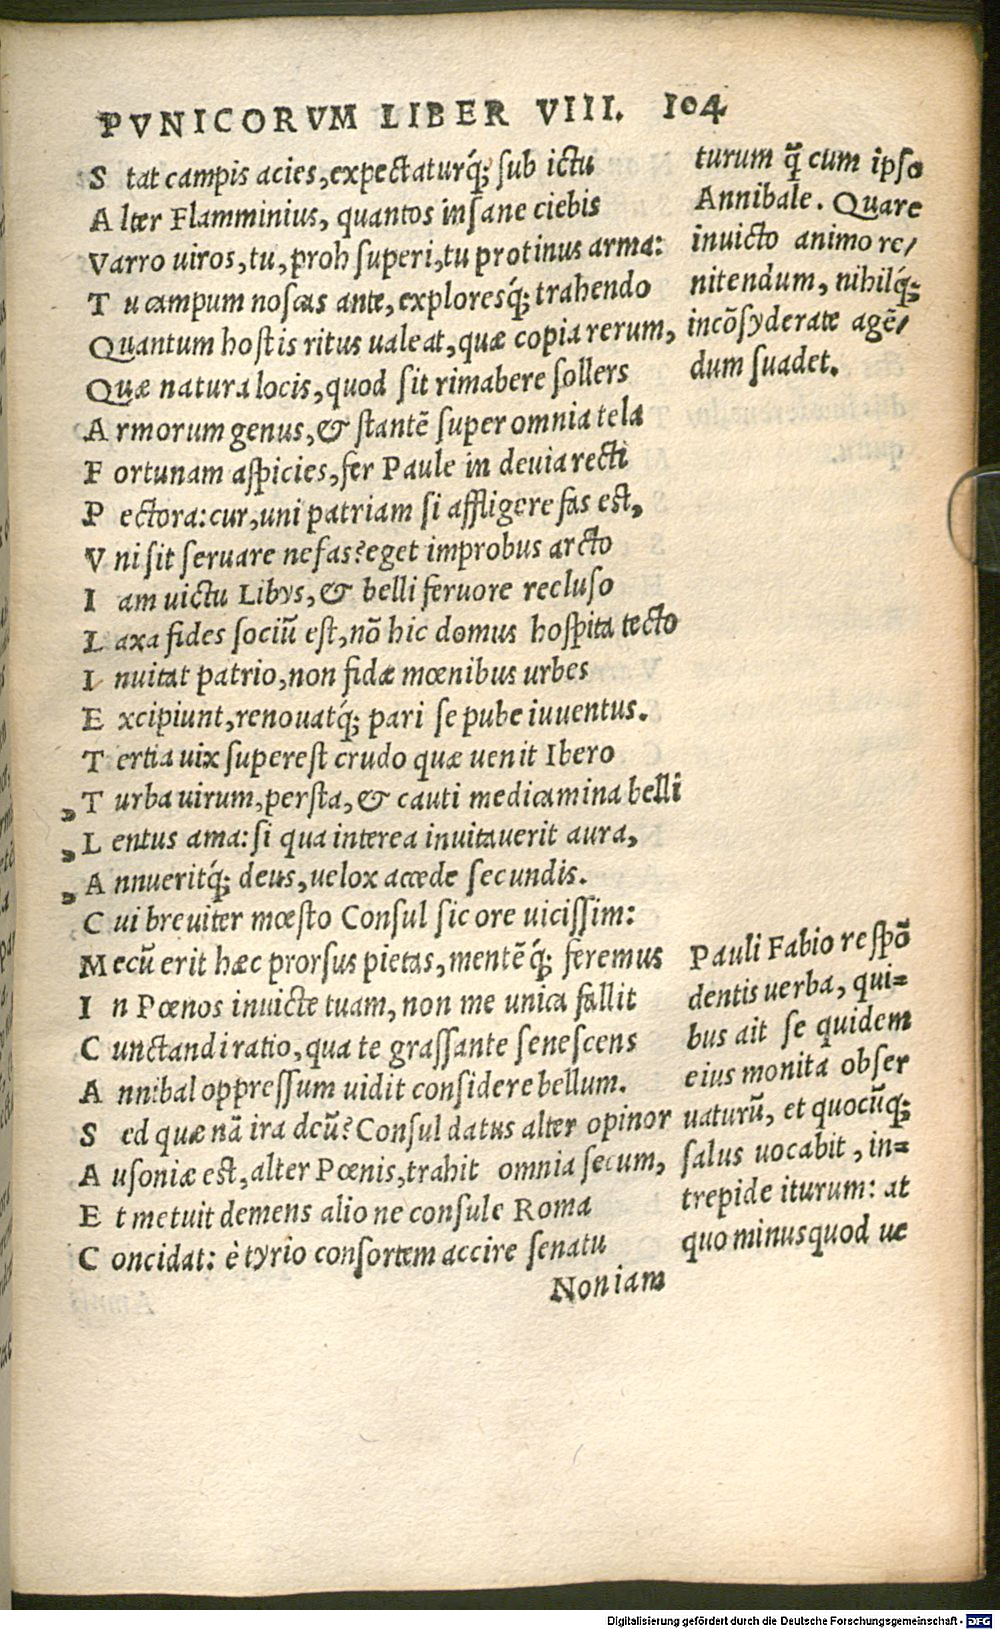 PVNICORVM LIBER VIII. 104
S tat campis acies, expectaturq́; sub ictu
A lter Flamminius, quantos insane ciebis
Varro uiros, tu, proh superi, tu protinus arma:
T u campum noscas ante, exploresq́; trahendo
Quantum hostis ritus ualeat, quæ copia rerum,
Quæ natura locis, quod sit rimabere sollers
A rmorum genus, & stantē super omnia tela
F ortunam aspicies, fer Paule in deuia recti
P ectora: cur, uni patriam si affligere fas est,
V ni sit seruare nefas? eget improbus arcto
I am uictu Libys, & belli feruore recluso
L axa fides sociū est, nō hic domus hospita tecto
I nuitat patrio, non fidæ mœnibus urbes
E xcipiunt, renouatq́; pari se pube iuuentus.
T ertia uix superest crudo quæ uenit Ibero
„ T urba uirum, persta, & cauti medicamina belli
„ L entus ama: si qua interea inuitauerit aura,
„ A nnueritq́; deus, uelox accede secundis.
C ui breuiter mœsto Consul sic ore uicissim:
M ecū erit hæc prorsus pietas, mentē q́; feremus
I n Pœnos inuicte tuam, non me unica fallit
C unctandi ratio, qua te grassante senescens
A nnibal oppressum uidit considere bellum.
S ed quæ nā ira deū? Consul datus alter opinor
A usoniæ est, alter Pœnis, trahit omnia secum,
E t metuit demens alio ne consule Roma
C oncidat: è tyrio consortem accire senatu
Non iam
turum q̃ cum ipso
Annibale. Quare
inuicto animo re/
nitendum, nihilq́;
incōsyderate agē/
dum suadet.
Pauli Fabio respō
dentis uerba, qui=
bus ait se quidem
eius monita obser
uaturū, et quocūq;
salus uocabit, in=
trepide iturum: at
quo minus quod ue
Digitalisierung gefördert durch die Deutsche Forschungsgemeinschaft - DFG